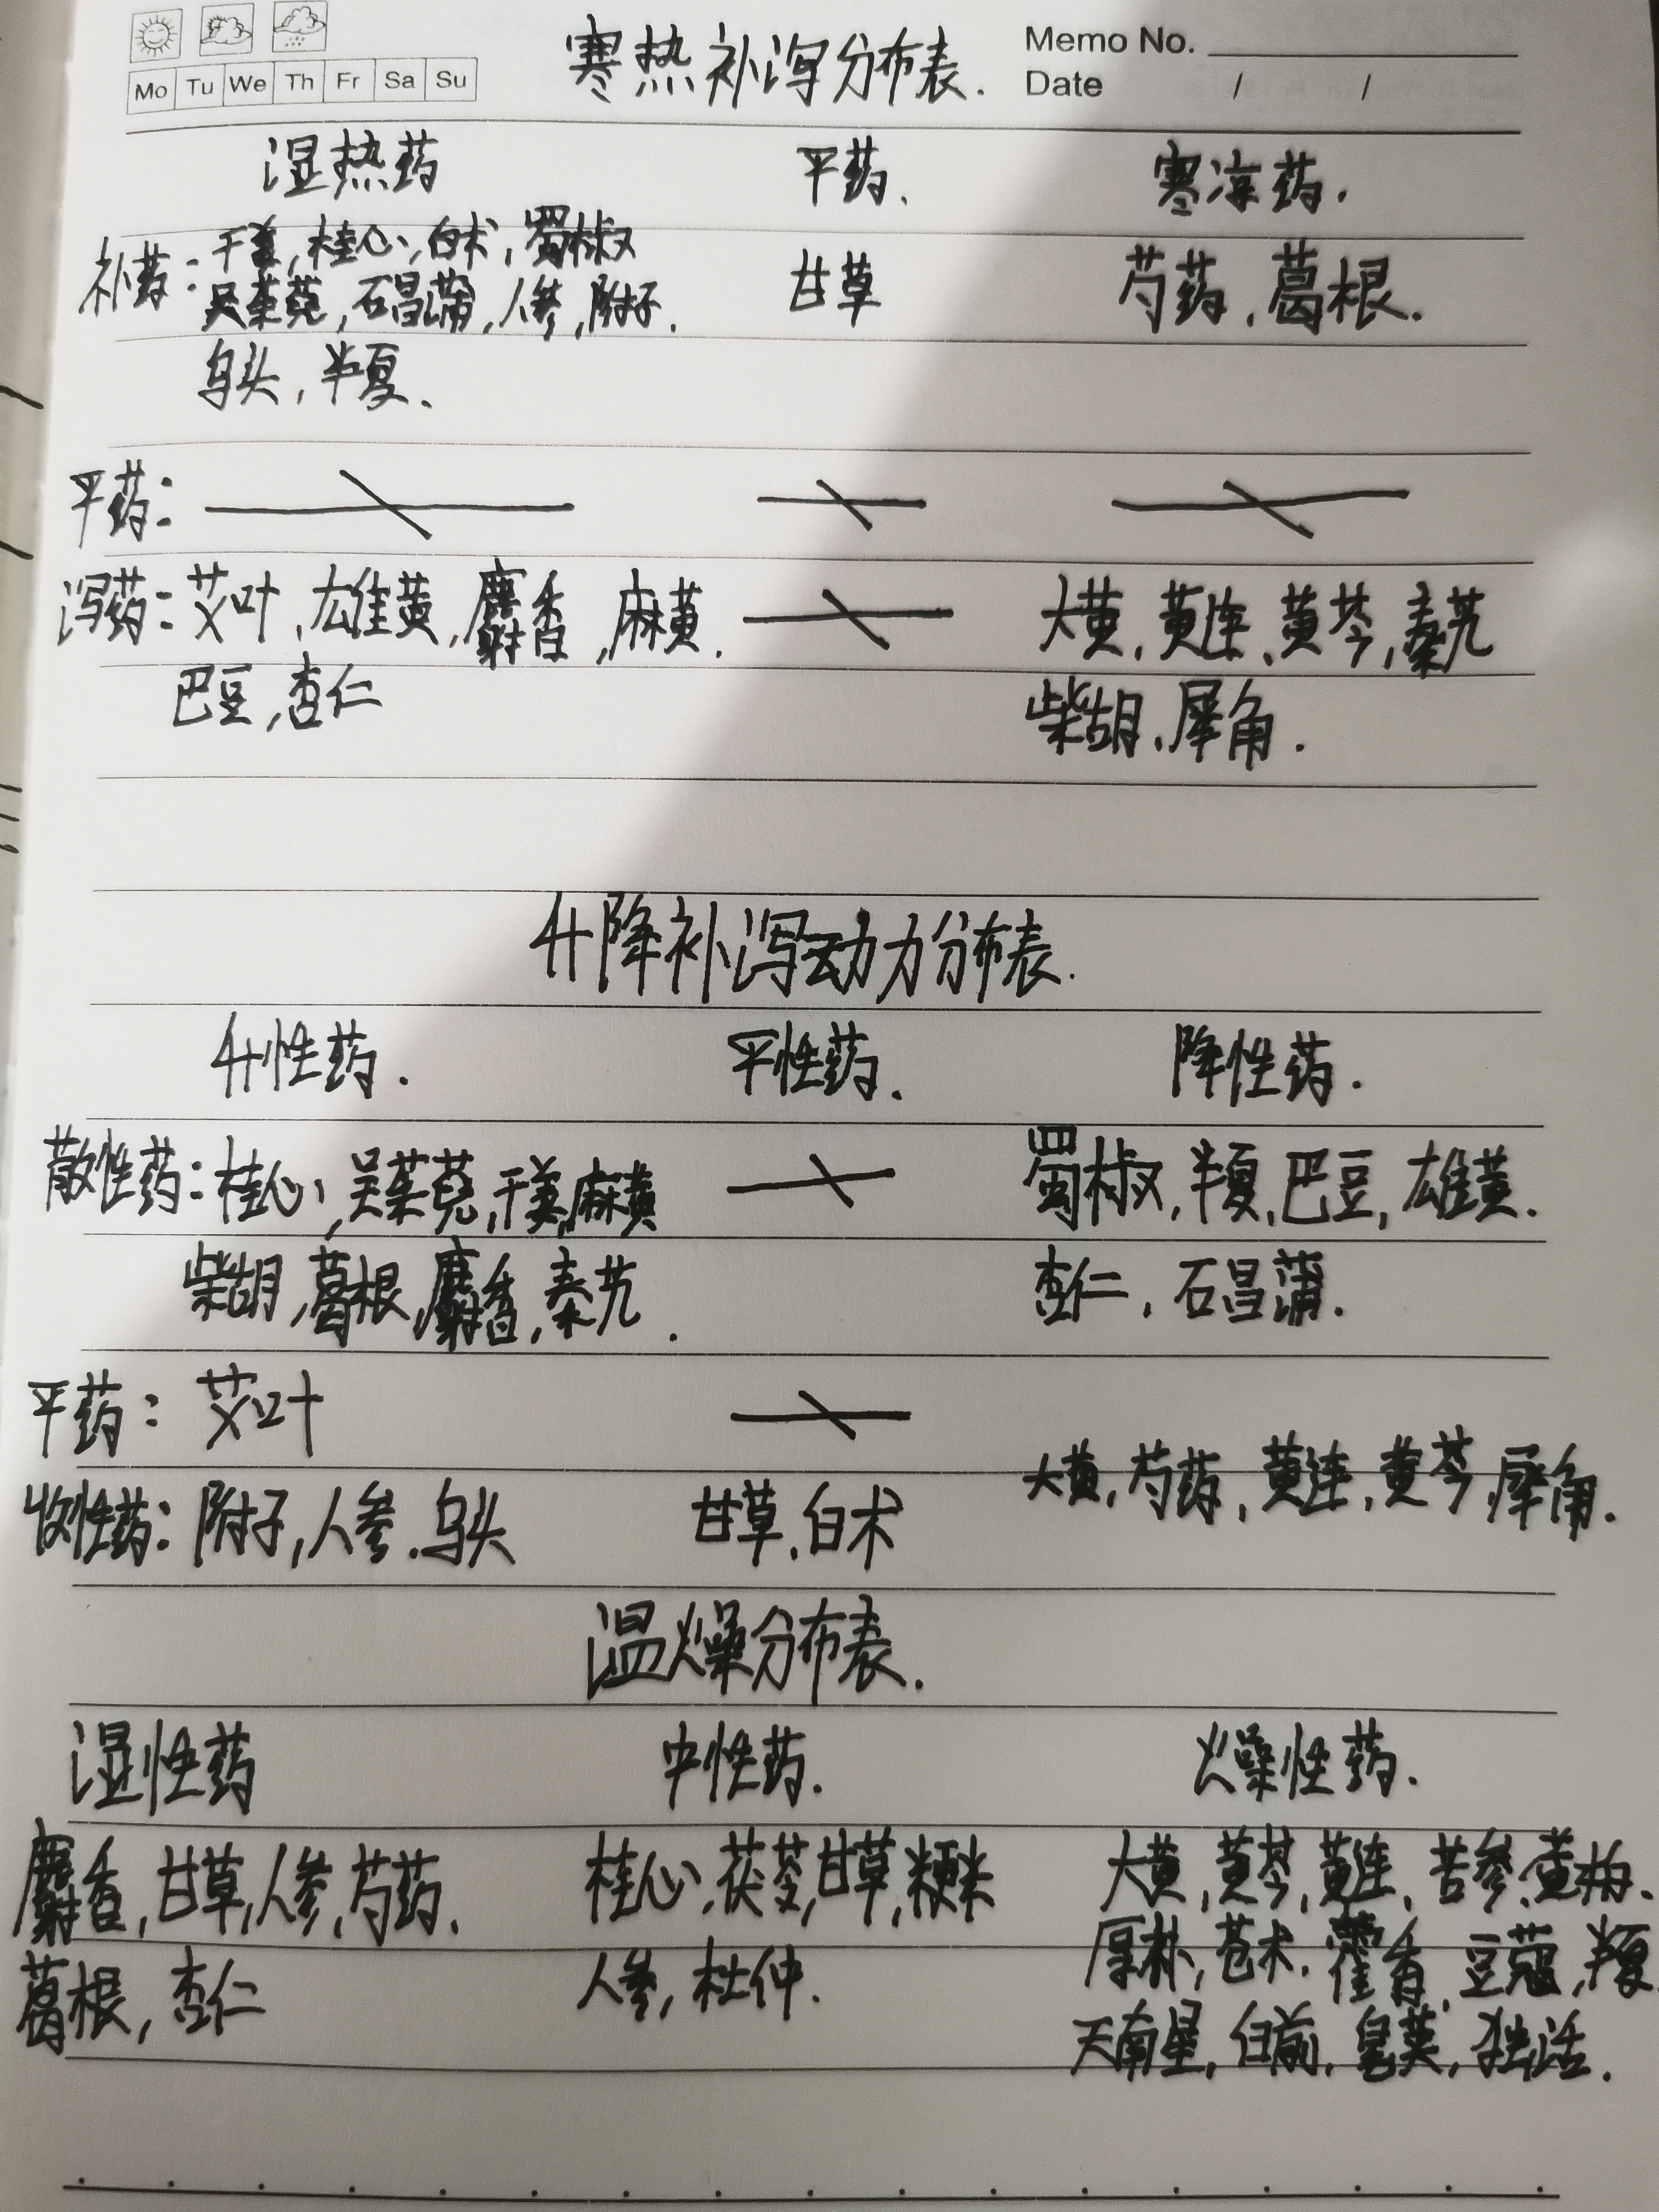 寒热补泻分布表.
Memo No.
Mo Tu We Th Fr Sa Su
Date / /
湿热药 平药、 寒凉药.
补药: 干姜,桂心,白术,蜀椒
吴茱萸,石昌蒲,人参,附子. 甘草 芍药,葛根.
乌头,半夏.
平药:
泻药: 艾叶,雄黄,麝香,麻黄. 大黄,黄连、黄芩,秦艽
巴豆,杏仁 柴胡,犀角.
升降补泻动力分布表.
升性药. 平性药. 降性药.
散性药: 桂心,吴茱萸,干姜,麻黄 蜀椒,半夏,巴豆,雄黄.
柴胡,葛根,麝香,秦艽. 杏仁,石昌蒲.
平药: 艾叶
大黄,芍药,黄连,黄芩,犀角.
收性药: 附子,人参.乌头 甘草.白术
温燥分布表.
湿性药 中性药. 燥性药.
麝香,甘草,人参,芍药. 桂心,茯苓,甘草,粳米 大黄,黄芩,黄连,苦参,黄柏.
葛根,杏仁 人参,杜仲. 厚朴,苍术.藿香,豆蔻,半夏
天南星,白前,皂荚,独活.